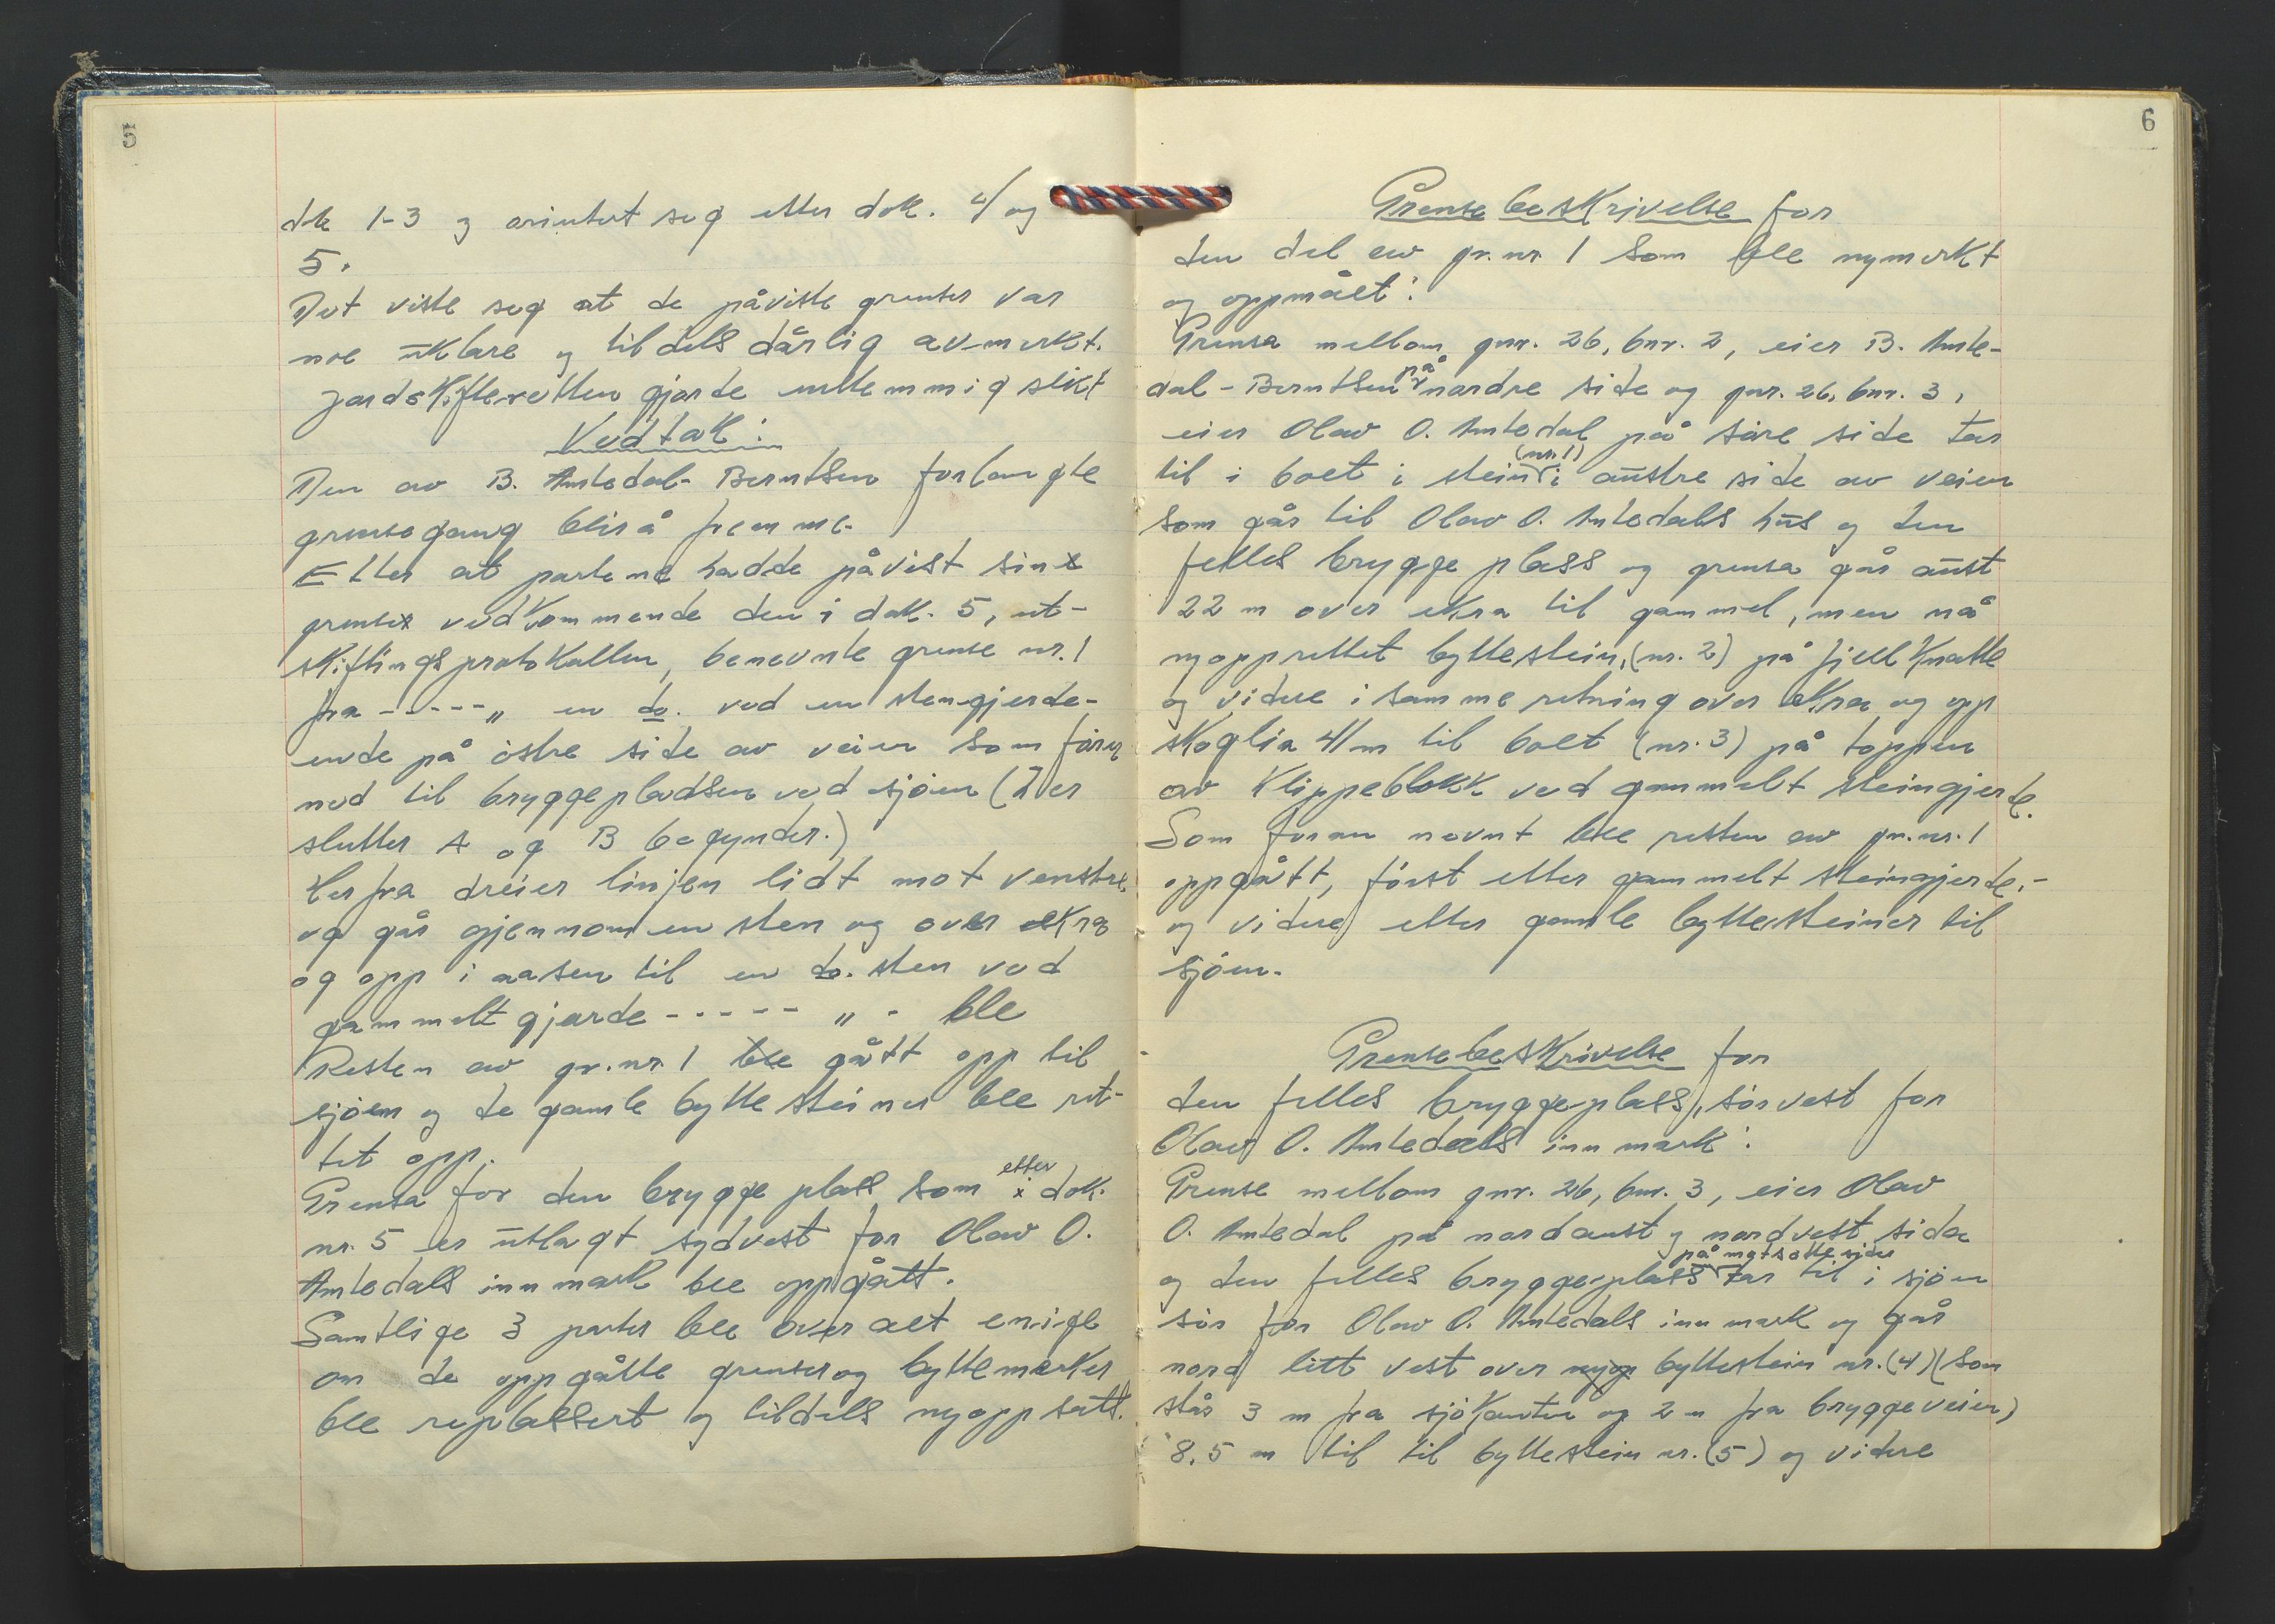 5
dte 1-3 og orientert seg etter dok. 4 og
5.
Det viste seg at de påviste grenser var
noe uklare og tildels dårlig avmerket.
Jordskifteretten gjorde enstemmig slikt
Vedtak:
Den av B. Amledal-Berntsen forlangte
grensegang blir å fremme.
Etter at partene hadde påvist sine
grenser vedkommende den i dok. 5, ut-
skiftingsprotokollen, benevnte grense nr. 1
fra -----„ en do. ved en stengjerde-
ende på östre side av veien som fören
ned til bryggepladsen ved sjöen (Her
slutter A og B begynder.)
Herfra dreier linjen lidt mot venstre
og går gjennom en sten og over ekra
og opp i aasen til en do. sten ved
gammelt gjærde ----- „ - ble
Resten av gr. nr. 1 ble gått opp til
sjöen og de gamle byttesteiner ble ret-
tet opp.
Grensa for den bryggeplass som etter dok.
nr. 5 er utlagt sydvest for Olav O.
Amledals innmark ble oppgått.
Samtlige 3 parter ble over alt enige
om de oppgåtte grenser og byttemerker
ble replassert og tildels nyoppsatt.
6
Grensebeskrivelse for
den del av gr. nr 1 som ble nymerkt
og oppmålt:
Grensa mellom gnr. 26, bnr. 2, eier B. Amle-
dal-Berntsen på nordre side og gnr. 26, bnr. 3,
eier Olav O. Amledal på söre side tar
til i bolt i stein (nr. 1) i austre side av veien
som går til Olav O. Amledals hus og den
felles bryggeplass og grensa går aust
22 m over ekra til gammel, men nå
nyopprettet byttestein, (nr. 2) på fjellknatte
og videre i samme retning over ekra og opp
skoglia 41 m til bolt (nr. 3) på toppen
av klippeblokk ved gammelt steingjerde.
Som foran nevnt ble resten av gr. nr. 1
oppgått, först etter gammelt steingjerde,-
og videre etter gamle byttesteiner til
sjöen.
Grensebeskrivelse for
den felles bryggeplass, sörvest for
Olav O. Amledals innmark:
Grense mellom gnr. 26, bnr. 3, eier Olav
O. Amledal på nordaust og nordvest sida
og den felles bryggeplass på motsatte sider tar til i sjöen
sör for Olav O. Amledals innmark og går
nord litt vest over byttestein nr. (4) (som
står 3 m fra sjökanten og 2 m fra bryggeveien)
8,5 m til til byttestein nr. (5) og videre